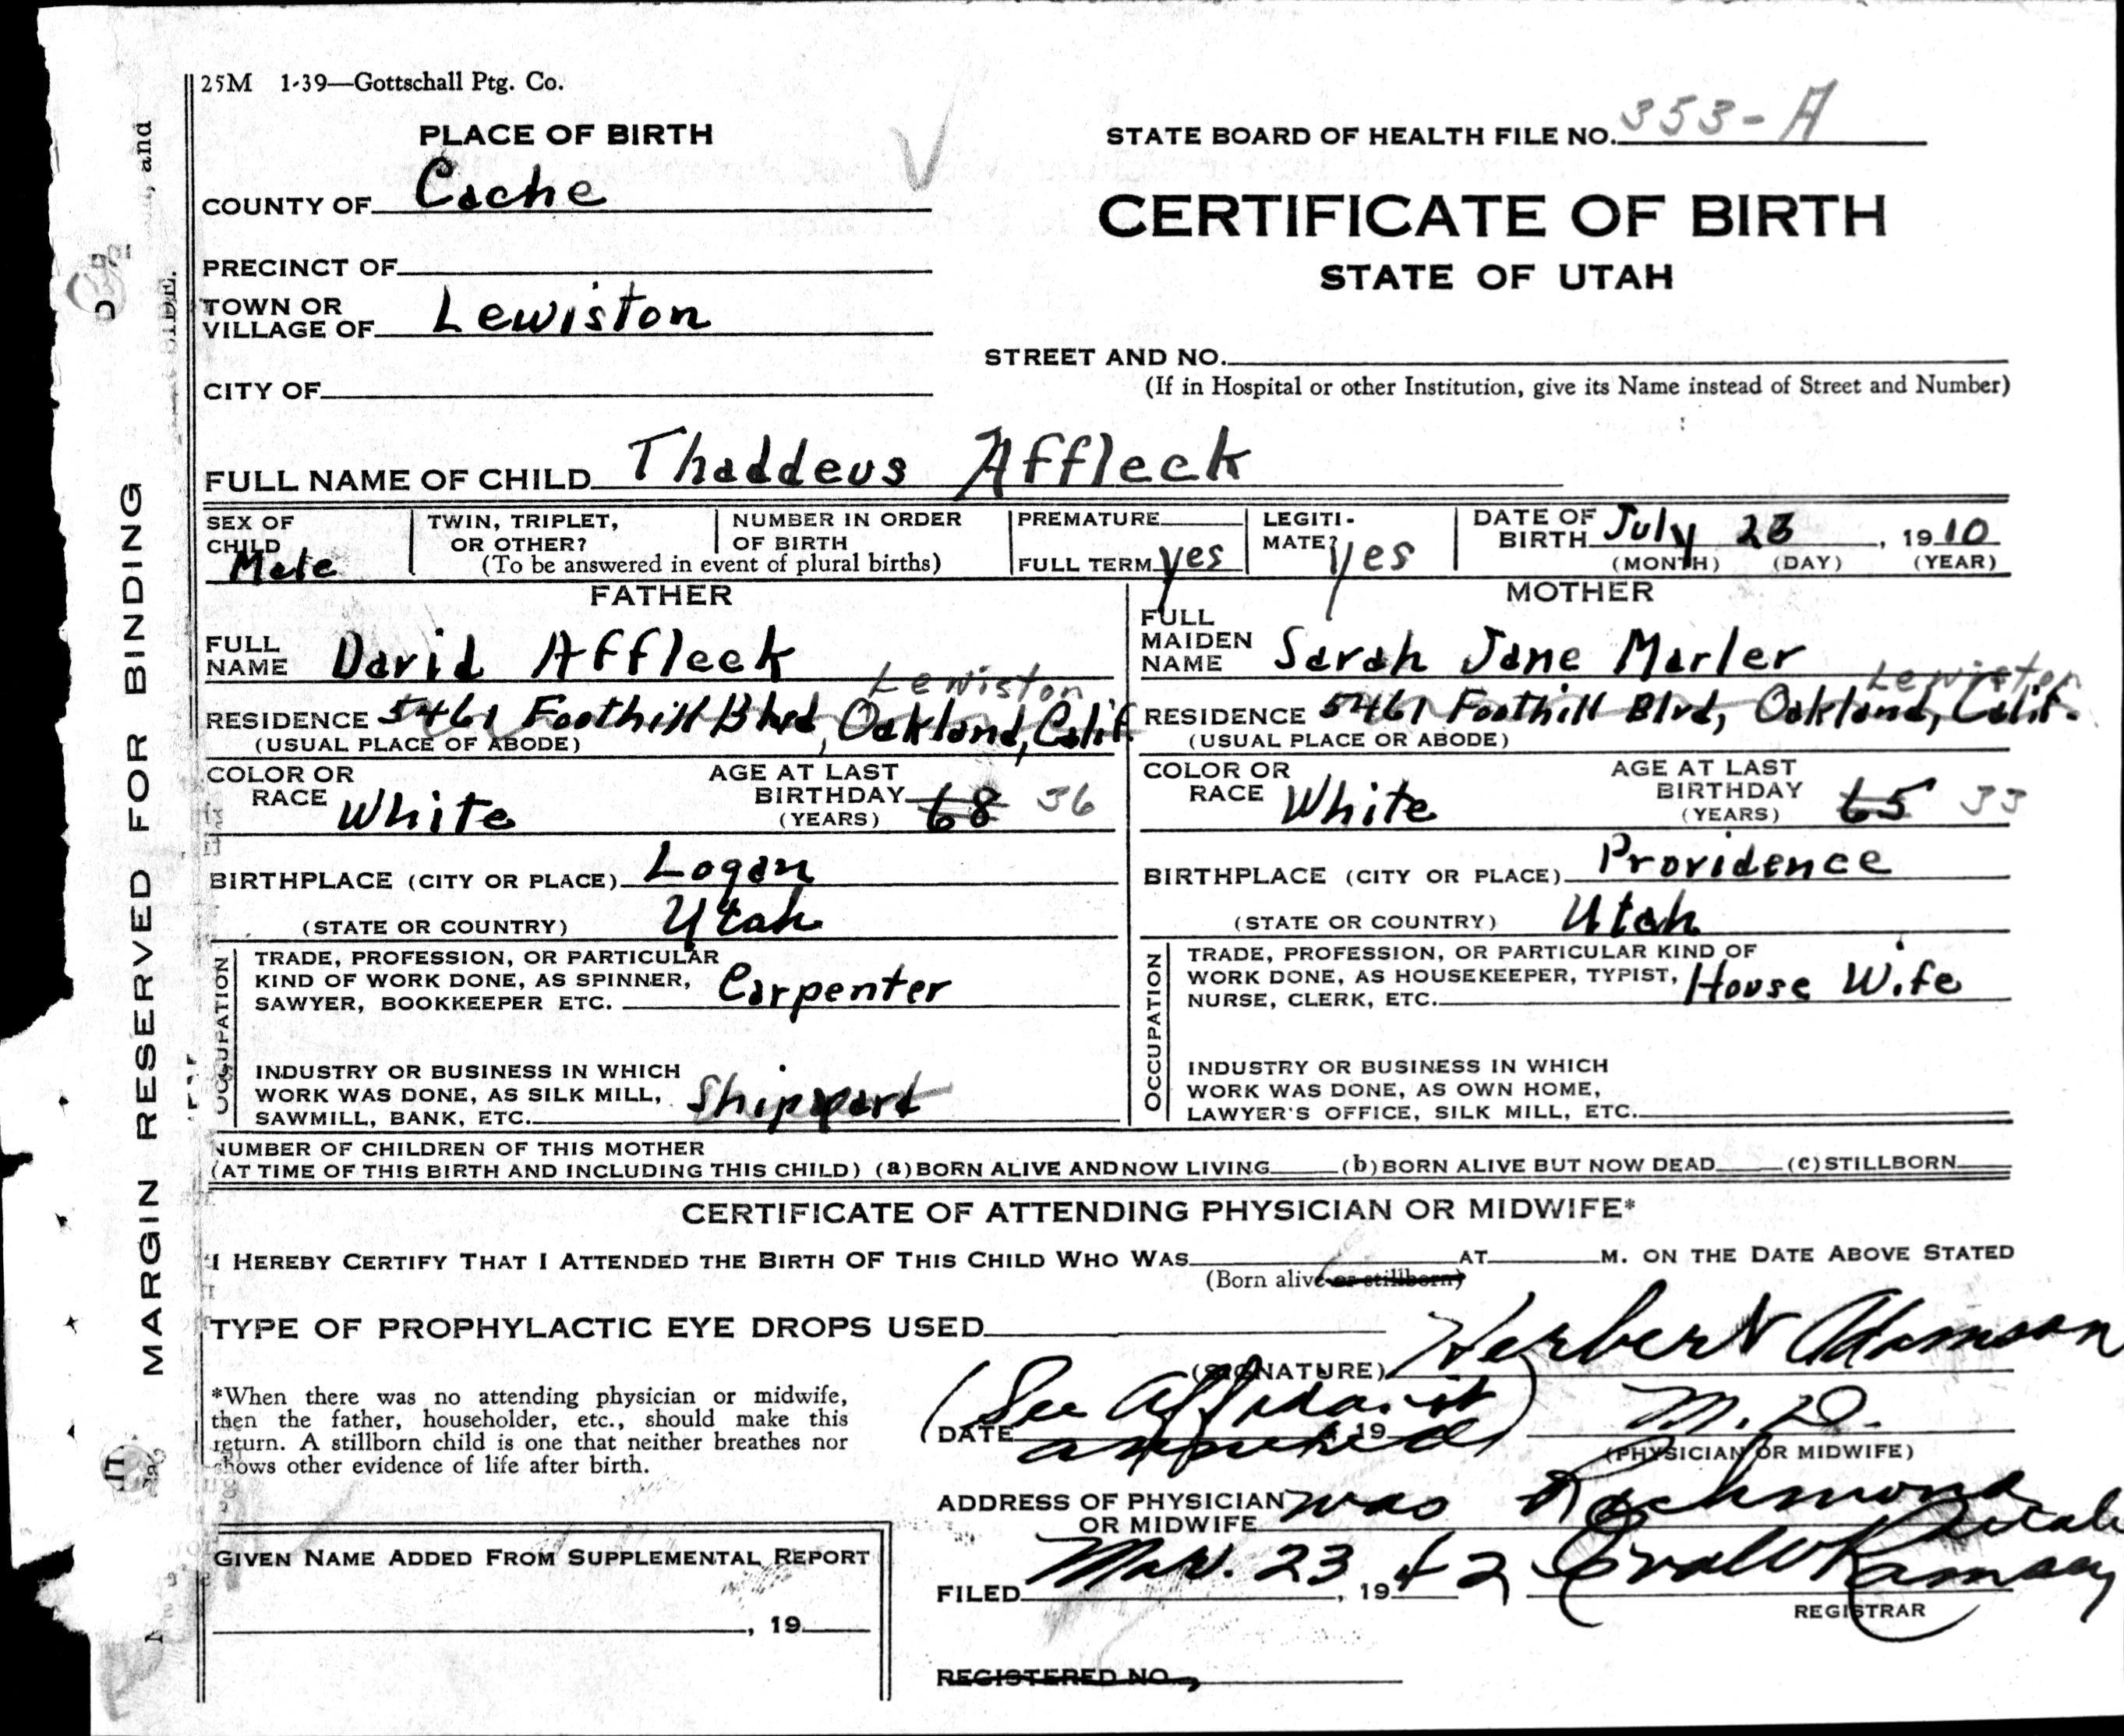 25M 1-39—Gottschall Ptg. Co.
PLACE OF BIRTH
STATE BOARD OF HEALTH FILE NO. 353-A
COUNTY OF Cache
CERTIFICATE OF BIRTH
STATE OF UTAH
PRECINCT OF
TOWN OR
VILLAGE OF Lewiston
STREET AND NO.
(If in Hospital or other Institution, give its Name instead of Street and Number)
CITY OF
FULL NAME OF CHILD Thaddeus Affleck
SEX OF
CHILD
Male
TWIN, TRIPLET,
OR OTHER?
NUMBER IN ORDER
OF BIRTH
(To be answered in event of plural births)
PREMATURE
FULL TERM yes
LEGITI-
MATE? yes
DATE OF
BIRTH July 23, 1910
(MONTH) (DAY) (YEAR)
FATHER
FULL
NAME David Affleck
Lewiston
RESIDENCE 5461 Foothill Blvd, Oakland, Calif.
(USUAL PLACE OF ABODE)
COLOR OR
RACE White
AGE AT LAST
BIRTHDAY 68 36
(YEARS)
BIRTHPLACE (CITY OR PLACE) Logan
(STATE OR COUNTRY) Utah
OCCUPATION
TRADE, PROFESSION, OR PARTICULAR
KIND OF WORK DONE, AS SPINNER,
SAWYER, BOOKKEEPER ETC. Carpenter
INDUSTRY OR BUSINESS IN WHICH
WORK WAS DONE, AS SILK MILL,
SAWMILL, BANK, ETC.
MOTHER
FULL
MAIDEN
NAME Sarah Jane Marler
Lewiston
RESIDENCE 5461 Foothill Blvd, Oakland, Calif.
(USUAL PLACE OR ABODE)
COLOR OR
RACE White
AGE AT LAST
BIRTHDAY 65 33
(YEARS)
BIRTHPLACE (CITY OR PLACE) Providence
(STATE OR COUNTRY) Utah
OCCUPATION
TRADE, PROFESSION, OR PARTICULAR KIND OF
WORK DONE, AS HOUSEKEEPER, TYPIST,
NURSE, CLERK, ETC. House Wife
INDUSTRY OR BUSINESS IN WHICH
WORK WAS DONE, AS OWN HOME,
LAWYER'S OFFICE, SILK MILL, ETC.
NUMBER OF CHILDREN OF THIS MOTHER
(AT TIME OF THIS BIRTH AND INCLUDING THIS CHILD) (a) BORN ALIVE AND NOW LIVING (b) BORN ALIVE BUT NOW DEAD (c) STILLBORN
CERTIFICATE OF ATTENDING PHYSICIAN OR MIDWIFE*
I HEREBY CERTIFY THAT I ATTENDED THE BIRTH OF THIS CHILD WHO WAS AT M. ON THE DATE ABOVE STATED
(Born alive or stillborn)
TYPE OF PROPHYLACTIC EYE DROPS USED
(SIGNATURE) Herbert Adamson
(See Affidavit
DATE , 19
M. D.
(PHYSICIAN OR MIDWIFE)
*When there was no attending physician or midwife,
then the father, householder, etc., should make this
return. A stillborn child is one that neither breathes nor
shows other evidence of life after birth.
ADDRESS OF PHYSICIAN
OR MIDWIFE was Richmond Utah
FILED Mar. 23, 1942
Ramsay
REGISTRAR
REGISTERED NO.
GIVEN NAME ADDED FROM SUPPLEMENTAL REPORT
, 19
MARGIN RESERVED FOR BINDING